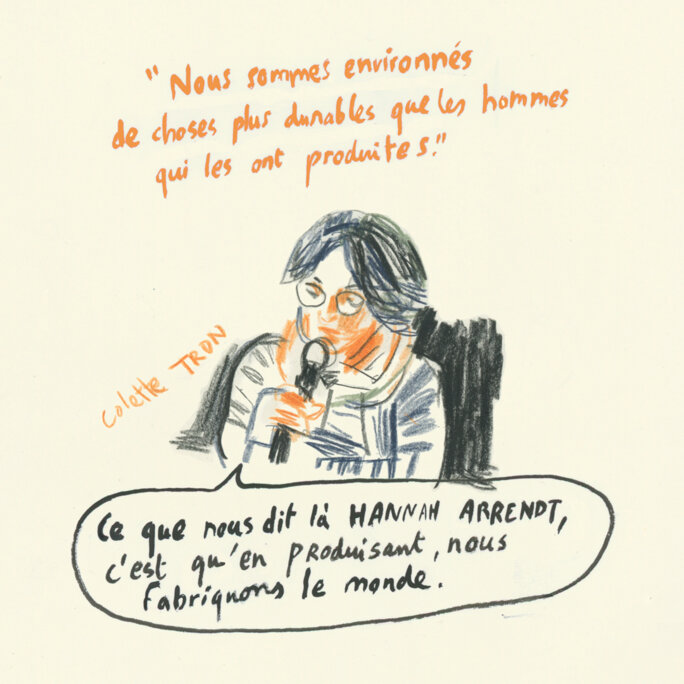 "Nous sommes environnés
de choses plus durables que les hommes
qui les ont produites."
Colette TRON
Ce que nous dit là HANNAH ARRENDT,
c'est qu'en PRODUISANT, nous
fabriquons le monde.